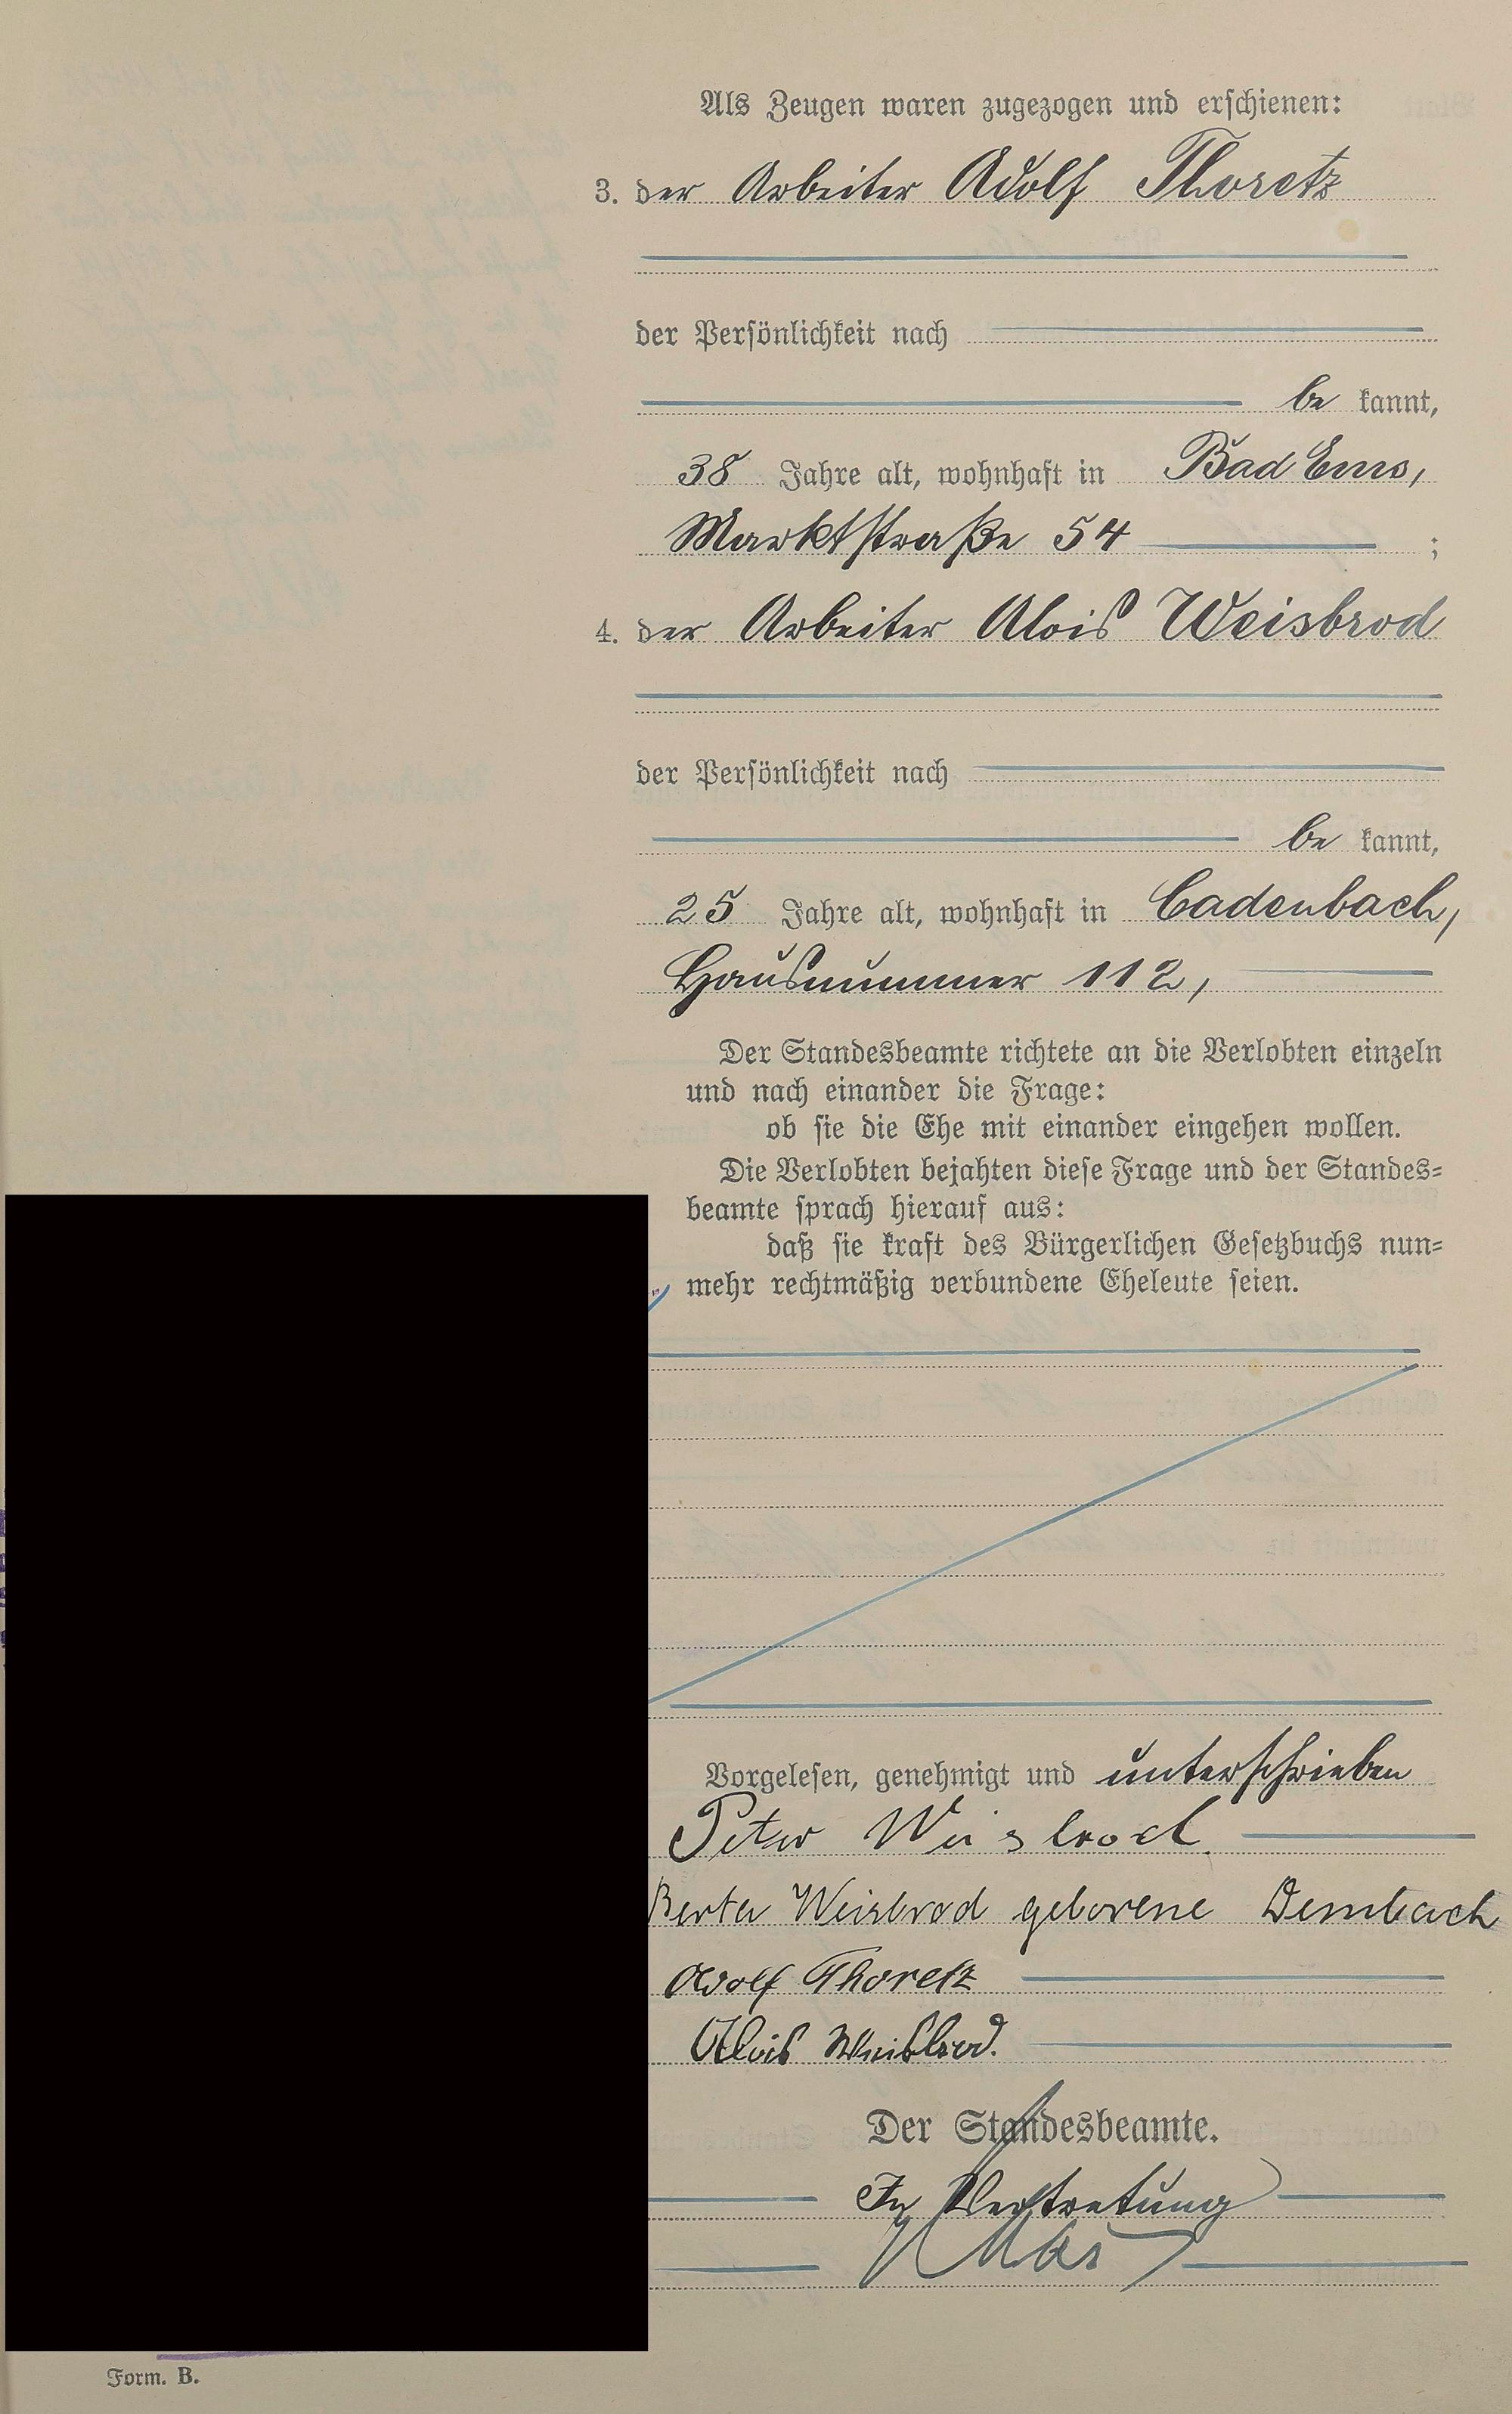 Als Zeugen waren zugezogen und erschienen:
3. der Arbeiter Adolf Thoretz
der Persönlichkeit nach
be kannt,
38 Jahre alt, wohnhaft in Bad Ems,
Marktstraße 54 ;
4. der Arbeiter Alois Weisbrod
der Persönlichkeit nach
be kannt,
25 Jahre alt, wohnhaft in Cadenbach,
Hausnummer 112,
Der Standesbeamte richtete an die Verlobten einzeln
und nach einander die Frage:
ob sie die Ehe mit einander eingehen wollen.
Die Verlobten bejahten diese Frage und der Standes=
beamte sprach hierauf aus:
daß sie kraft des Bürgerlichen Gesetzbuchs nun=
mehr rechtmäßig verbundene Eheleute seien.
Vorgelesen, genehmigt und unterschrieben
Peter Weisbrod.
Berta Weisbrod geborene Dembach
Adolf Thoretz
Alois Weisbrod.
Der Standesbeamte.
In Vertretung
Form. B.